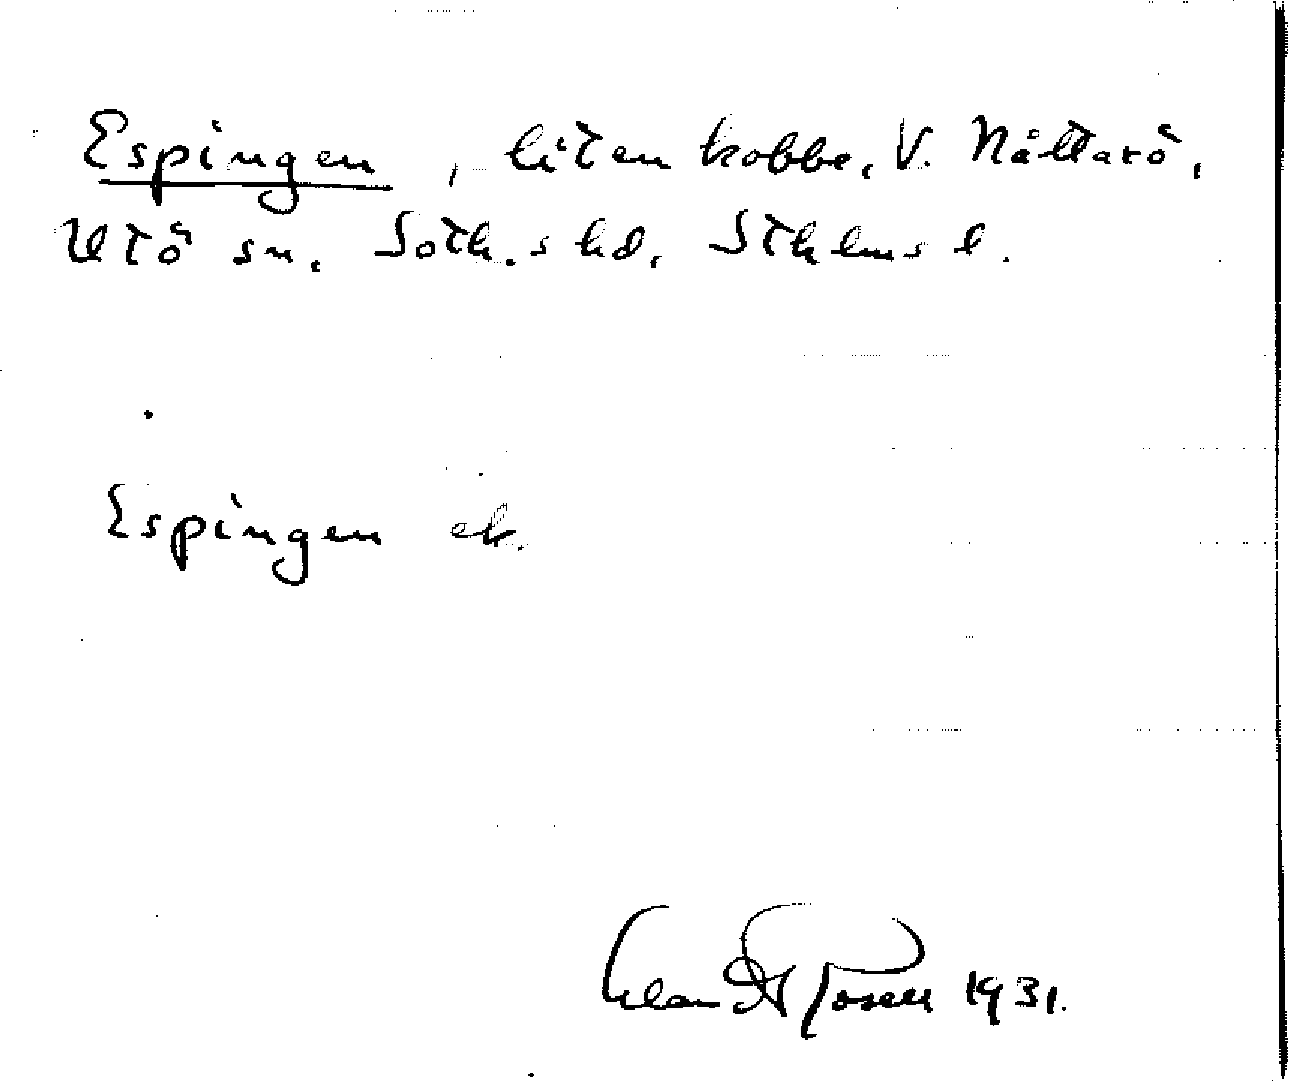 Espingen, liten kobbe, V. Nåttarö,
Utö sn, Soth.s hd, Sthlms l.
Espingen ek.
1931.